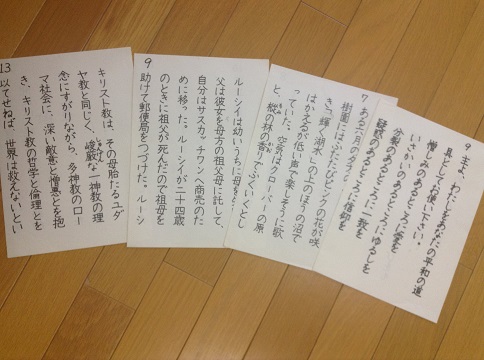 9 主よ、わたしをあなたの平和の道
具としてお使い下さい。
憎しみのあるところに愛を
いさかいのあるところにゆるしを
分裂のあるところに一致を
疑惑のあるところに信仰を
7 ある六月の夕ぐれ
樹園にはふたたびピンクの花が咲
き、「輝く湖水」の上のほうの沼で
はかえるが低い声で楽しそうに歌
っていた。空気はクローバーの原
と、樅の林の香りでふくいくとし
9
ルーシイは幼いうちに母を
父は彼女を母方の祖父母に託して、
自分はサスカッチワンへ商売のた
めに移った。ルーシイが二十四歳
のときに祖父が死んだので祖母を
助けて郵便局をつづけた。ルーシ
13
キリスト教は、その母胎たるユダ
ヤ教と同じく、峻厳な一神教の理
念にすがりながら、多神教のロー
マ社会に、深い敵意と憎悪とを抱
き、キリスト教の哲学と倫理とを
以てせねば 世界は救えないとい